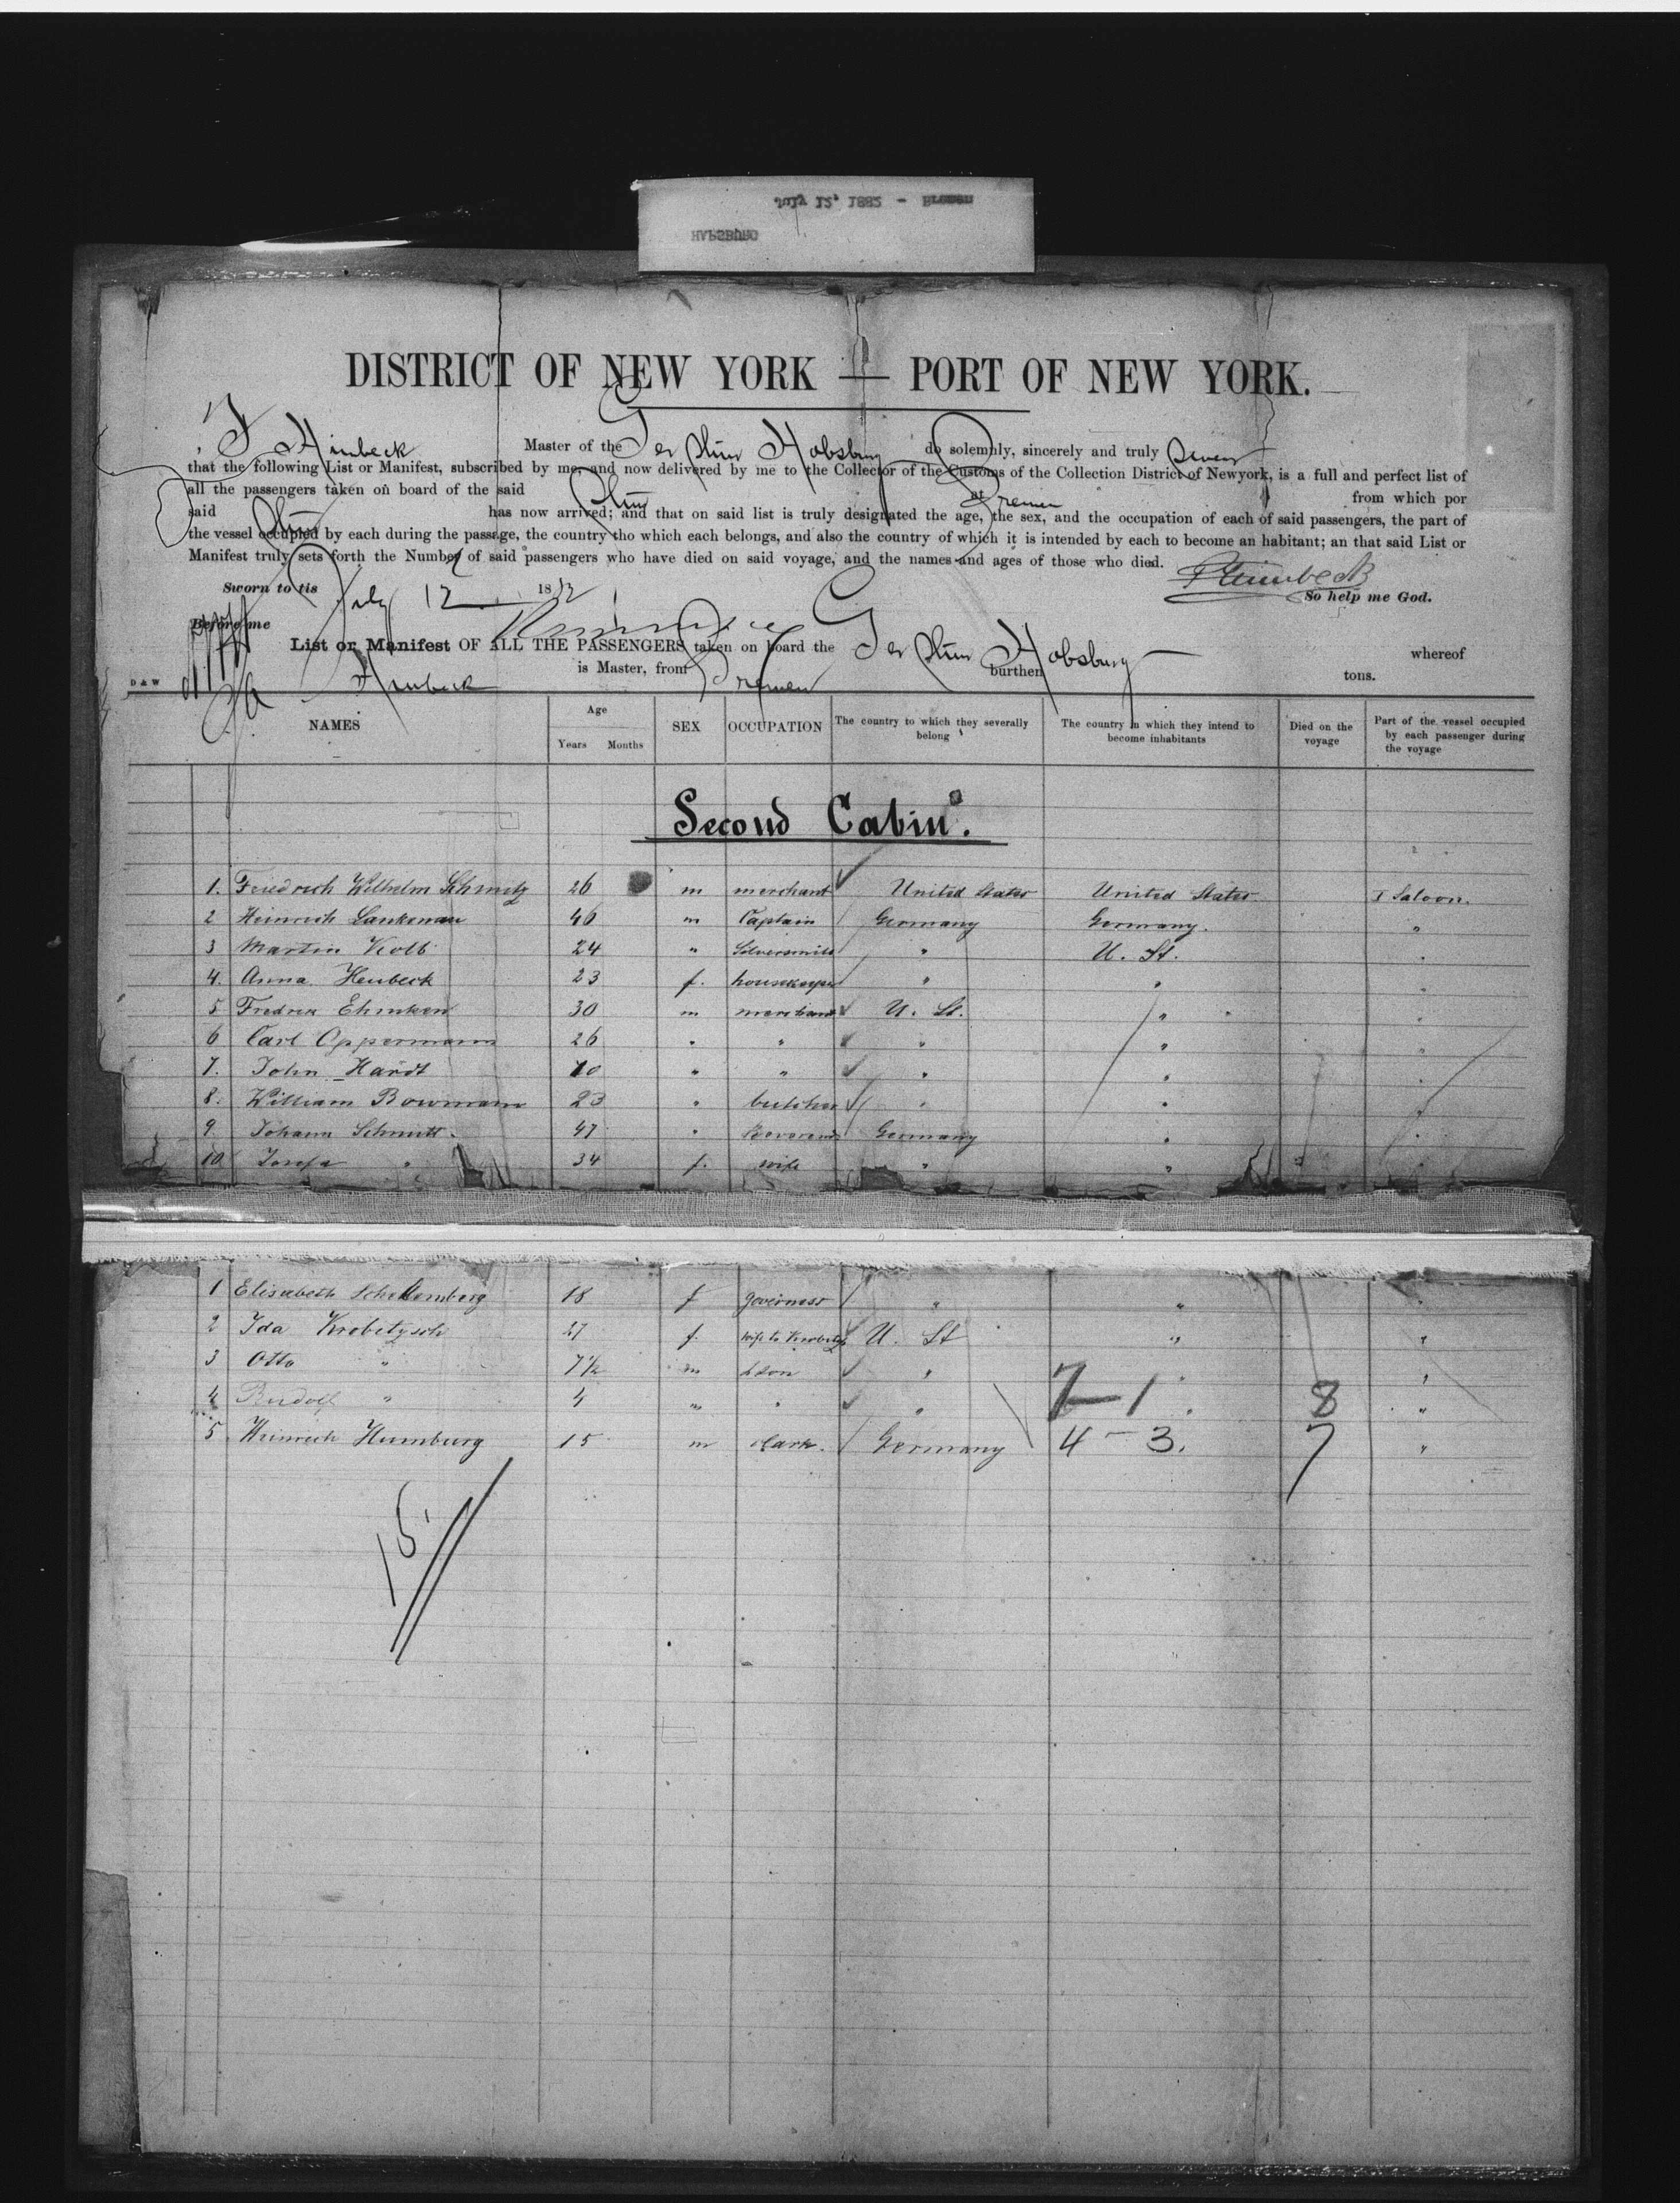 July 12, 1882 - Bremen
HAPSBURG
DISTRICT OF NEW YORK — PORT OF NEW YORK.
Master of the Ger Stmr Habsburg do solemnly, sincerely and truly swear
that the following List or Manifest, subscribed by me, and now delivered by me to the Collector of the Customs of the Collection District of Newyork, is a full and perfect list of
all the passengers taken on board of the said Stmr at Bremen from which por
said Stmr has now arrived; and that on said list is truly designated the age, the sex, and the occupation of each of said passengers, the part of
the vessel occupied by each during the passage, the country tho which each belongs, and also the country of which it is intended by each to become an habitant; an that said List or
Manifest truly sets forth the Number of said passengers who have died on said voyage, and the names and ages of those who died.
Sworn to tis July 12 1882
So help me God.
Before me
List or Manifest OF ALL THE PASSENGERS taken on board the Ger Stmr Habsburg whereof
is Master, from Bremen burthen tons.
D & W
NAMES Age Years Months SEX OCCUPATION The country to which they severally belong The country in which they intend to become inhabitants Died on the voyage Part of the vessel occupied by each passenger during the voyage
Second Cabin.
1. Friedrich Wilhelm Schmitz 26 m merchant United States United States I Saloon.
2 Heinrich Lankenau 46 m Captain Germany Germany. "
3 Martin Kolb 24 " Silversmith " U. St. "
4. Anna Heubeck 23 f. housekeeper " " "
5 30 m merchant U. St. " "
6 Carl Oppermann 26 " " " " "
7. John Hardt " " " " "
8. William Bowmann 23 " butcher " " "
9. Johann Schmitt. 47 " Reverend Germany " "
10 Josefa " 34 f. wife " "
1 Elisabeth Schellemberg 18 f governess " " "
2 Ida Krobitzsch 27 f. wife to U. St " "
3 Otto " 7½ m son " " "
4 Rudolf " 4 " " " 7-1 8 "
5 Heinrich Humburg 15 m clark. Germany 4-3. 7 "
15.